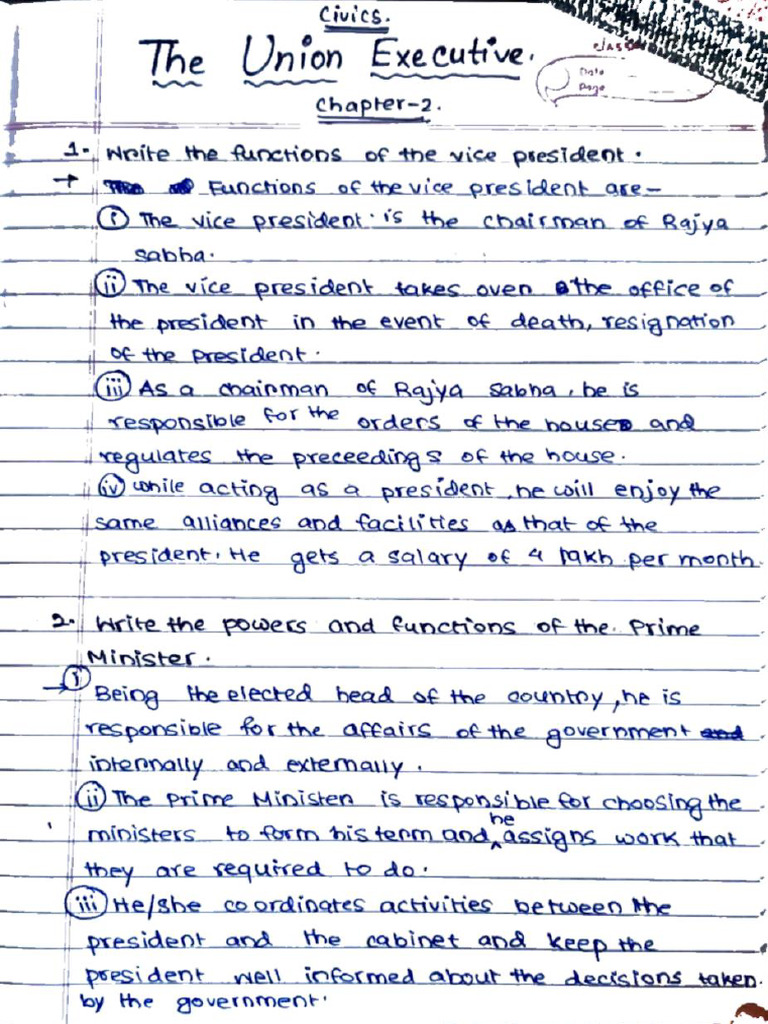 Civics.
The Union Executive.
Chapter-2.
Date
Page
1. Write the functions of the vice president.
→ Functions of the vice president are-
(i) The vice president is the chairman of Rajya
sabha.
(ii) The vice president takes over the office of
the president in the event of death, resignation
of the president.
(iii) As a chairman of Rajya sabha, he is
responsible for the orders of the house and
regulates the preceedings of the house.
(iv) while acting as a president, he will enjoy the
same alliances and facilities as that of the
president. He gets a salary of 4 lakh per month
2. Write the powers and functions of the Prime
Minister.
→ (i) Being the elected head of the country, he is
responsible for the affairs of the government
internally and externally.
(ii) The Prime Minister is responsible for choosing the
ministers to form his term and he assigns work that
they are required to do.
(iii) He/she coordinates activities between the
president and the cabinet and keep the
president well informed about the decisions taken.
by the government.